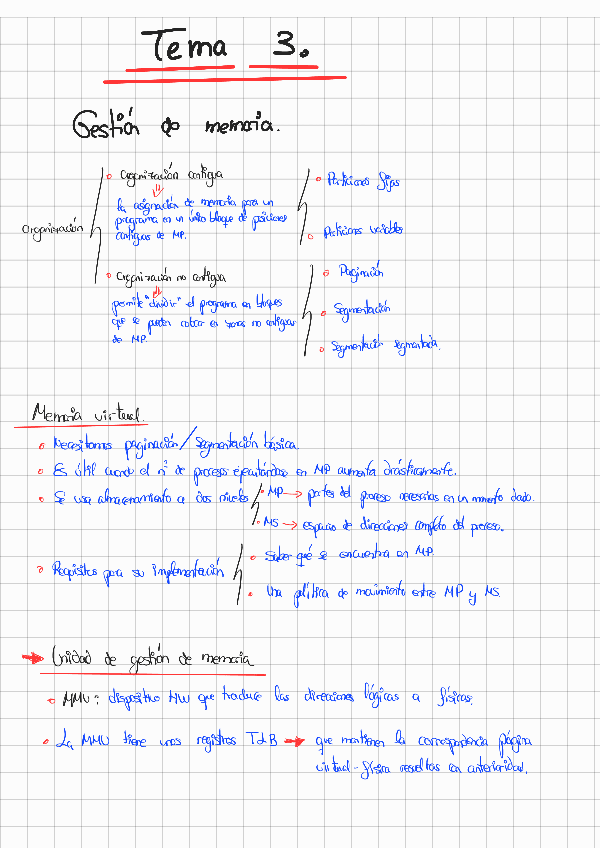 Tema 3.
Gestión de memoria.
Organización
Organización contigua
La asignación de memoria para un
programa en un único bloque de posiciones
contiguas de MP.
Particiones fijas
Particiones variables
Organización no contigua
permite "dividir" el programa en bloques
que se pueden colocar en zonas no contiguas
de MP.
Paginación
Segmentación
Segmentación segmentada.
Memoria virtual.
Necesitamos paginación/segmentación básica.
Es útil cuando el nº de procesos ejecutándose en MP aumenta drásticamente.
Se usa almacenamiento a dos niveles
MP → partes del proceso necesarias en un momento dado.
MS → espacio de direcciones completo del proceso.
Requisitos para su implementación
Saber qué se encuentra en MP.
Una política de movimiento entre MP y MS.
→ Unidad de gestión de memoria
MMU: dispositivo HW que traduce las direcciones lógicas a físicas.
La MMU tiene unos registros TLB → que mantienen la correspondencia página
virtual-física resueltas con anterioridad.